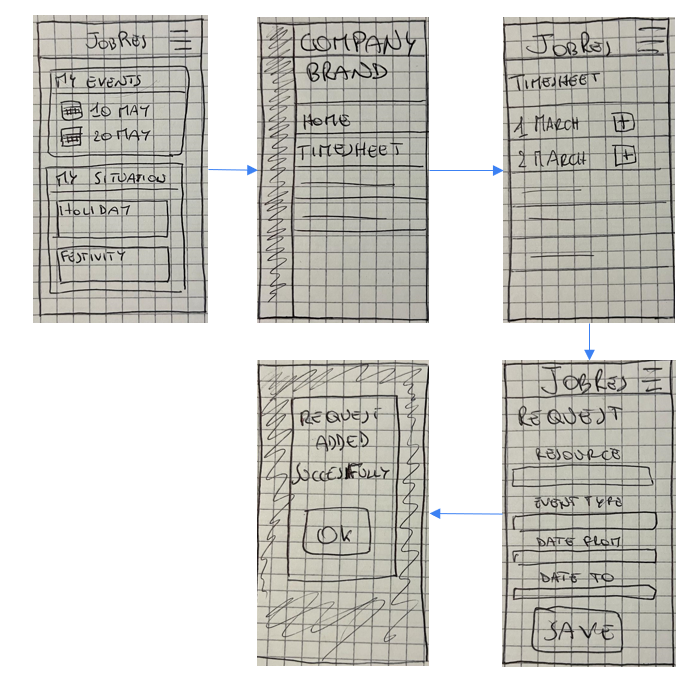 JOBRES
MY EVENTS
10 MAY
20 MAY
MY SITUATION
HOLIDAY
FESTIVITY
COMPANY
BRAND
HOME
TIMESHEET
JOBRES
TIMESHEET
1 MARCH +
2 MARCH +
JOBRES
REQUEST
RESOURCE
EVENT TYPE
DATE FROM
DATE TO
SAVE
REQUEST
ADDED
SUCCESSFULLY
OK